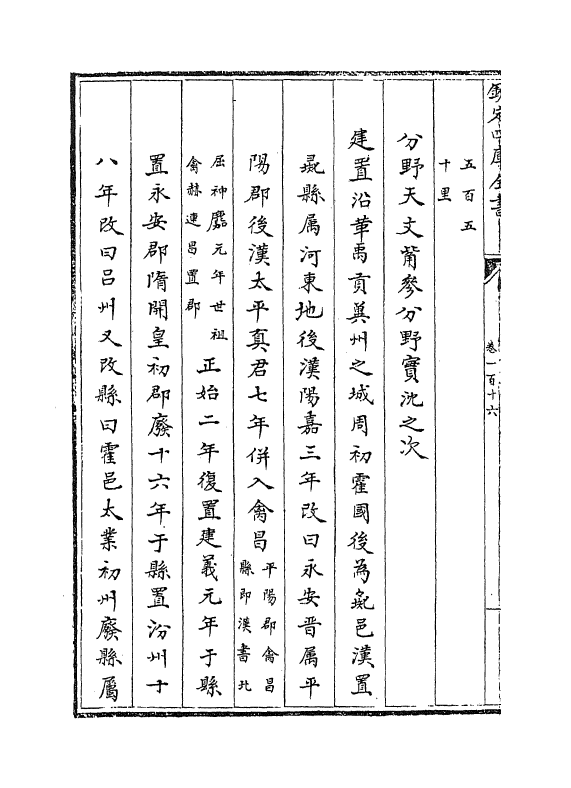 欽定四庫全書
卷一百十六
五百五
十里
分野天文觜參分野實沈之次
建置沿革禹貢冀州之城周初霍國後為彘邑漢置
彘縣属河東地後漢陽嘉三年改曰永安晋属平
陽郡後漢太平真君七年併入禽昌
平陽郡禽昌
縣即漢書北
屈神䴥元年世祖
禽赫連昌置郡
正始二年復置建義元年于縣
置永安郡隋開皇初郡廢十六年于縣置汾州十
八年改曰吕州又改縣曰霍邑太業初州廢縣屬